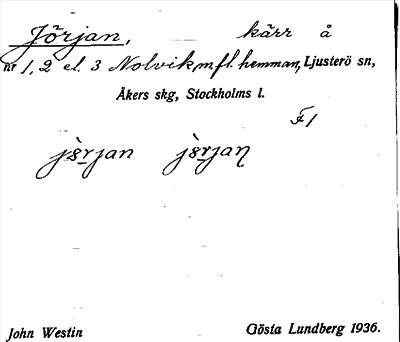 Jörjan, kärr å
nr 1, 2 el. 3 Nolvik, m.fl. hemman, Ljusterö sn,
Åkers skg, Stockholms l.
F1
John Westin Gösta Lundberg 1936.